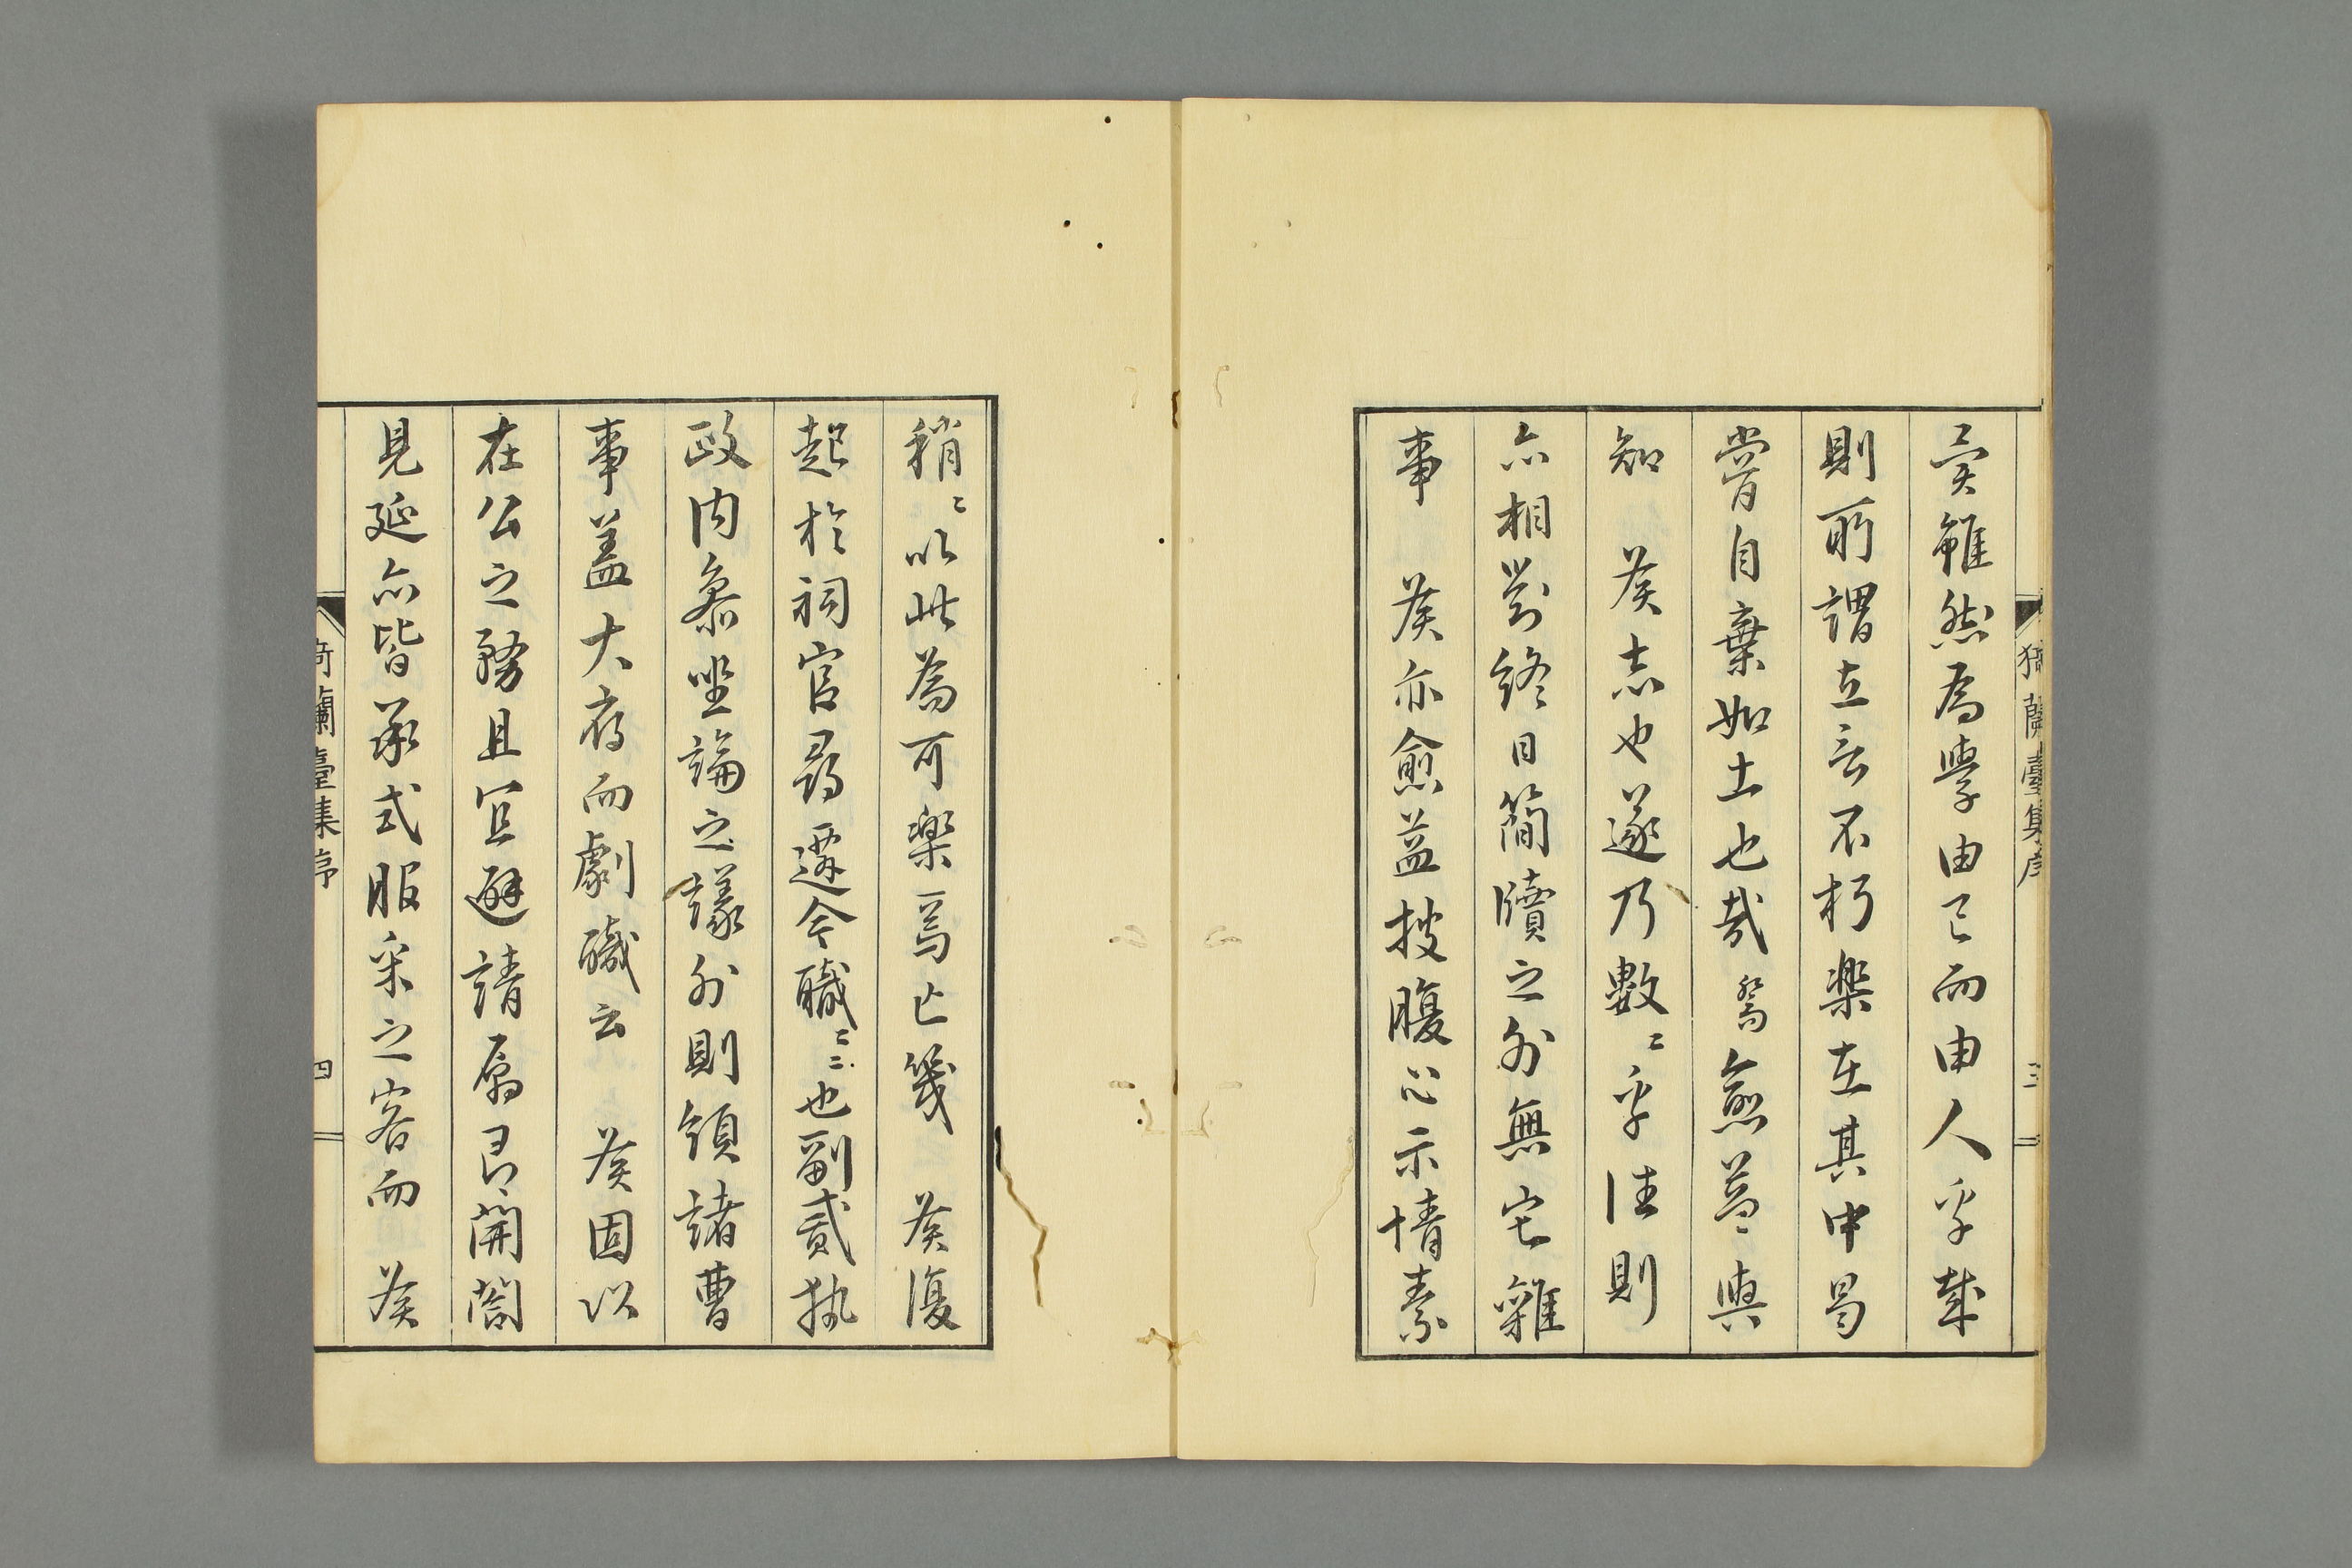 矣雖然為學由己而由人乎哉
則所謂立言不朽樂在其中曷
嘗自棄如土也哉喬愈益與
知　侯志也遂乃數〻乎往則
亦相對終日簡牘之外無它雜
事　侯亦愈益披腹心示情素
猗蘭臺集序　三
稍〻以此為可樂焉亡幾　侯復
起於祠官尋遷今職〻〻也副貳執
政内參坐論之議外則領諸曹
事蓋大府而劇職云　侯固以
在公之務且宜避請屬即開閤
見延亦皆承式服采之客而　侯
猗蘭臺集序　四